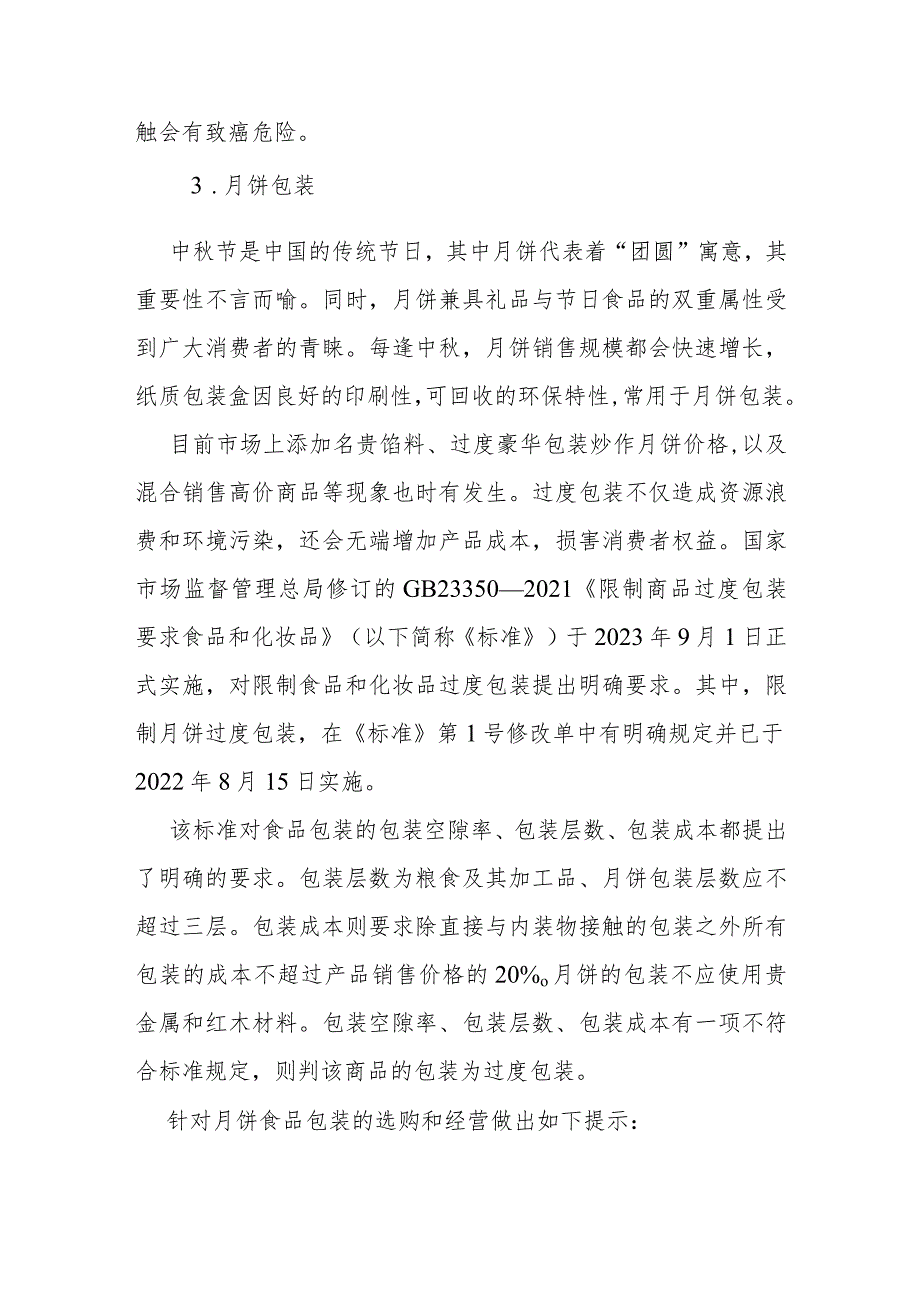 触会有致癌危险。
3 .月饼包装
中秋节是中国的传统节日，其中月饼代表着“团圆”寓意，其
重要性不言而喻。同时，月饼兼具礼品与节日食品的双重属性受
到广大消费者的青睐。每逢中秋，月饼销售规模都会快速增长，
纸质包装盒因良好的印刷性,可回收的环保特性,常用于月饼包装。
目前市场上添加名贵馅料、过度豪华包装炒作月饼价格,以及
混合销售高价商品等现象也时有发生。过度包装不仅造成资源浪
费和环境污染，还会无端增加产品成本，损害消费者权益。国家
市场监督管理总局修订的 GB23350—2021《限制商品过度包装
要求食品和化妆品》（以下简称《标准》）于 2023 年 9 月 1 日正
式实施，对限制食品和化妆品过度包装提出明确要求。其中，限
制月饼过度包装，在《标准》第 1 号修改单中有明确规定并已于
2022 年 8 月 15 日实施。
该标准对食品包装的包装空隙率、包装层数、包装成本都提出
了明确的要求。包装层数为粮食及其加工品、月饼包装层数应不
超过三层。包装成本则要求除直接与内装物接触的包装之外所有
包装的成本不超过产品销售价格的 20%o月饼的包装不应使用贵
金属和红木材料。包装空隙率、包装层数、包装成本有一项不符
合标准规定，则判该商品的包装为过度包装。
针对月饼食品包装的选购和经营做出如下提示：